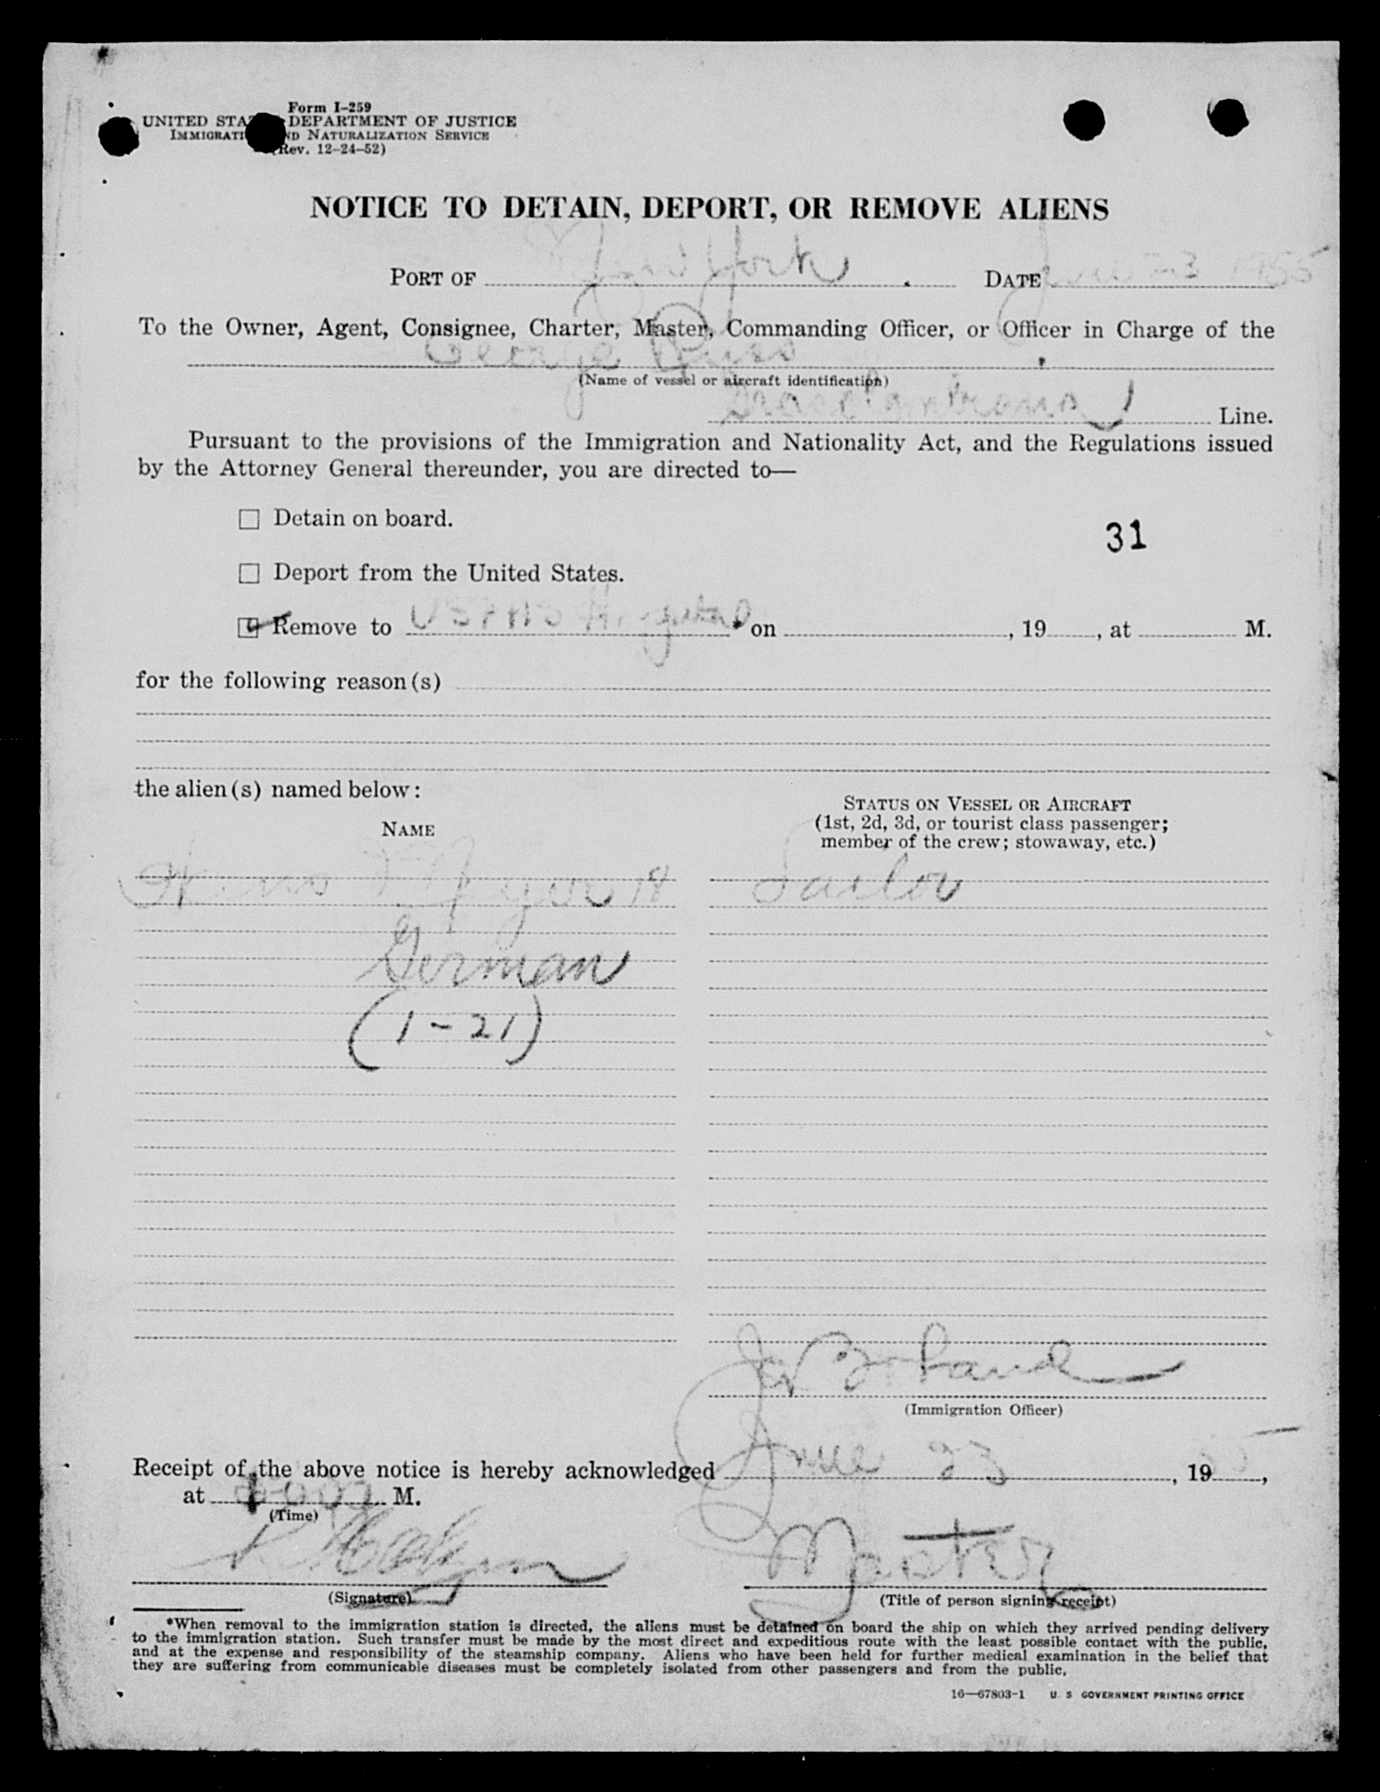 Form I-259
UNITED STATES DEPARTMENT OF JUSTICE
IMMIGRATION AND NATURALIZATION SERVICE
(Rev. 12-24-52)
NOTICE TO DETAIN, DEPORT, OR REMOVE ALIENS
PORT OF New York DATE June 23 1955
To the Owner, Agent, Consignee, Charter, Master, Commanding Officer, or Officer in Charge of the
George
(Name of vessel or aircraft identification)
Line.
Pursuant to the provisions of the Immigration and Nationality Act, and the Regulations issued
by the Attorney General thereunder, you are directed to—
☐ Detain on board.
31
☐ Deport from the United States.
☑ Remove to USPHS Hospital * on , 19 , at M.
for the following reason(s)
the alien(s) named below:
STATUS ON VESSEL OR AIRCRAFT
(1st, 2d, 3d, or tourist class passenger;
member of the crew; stowaway, etc.)
NAME
Meyer 18 Sailor
German
(1-21)
(Immigration Officer)
Receipt of the above notice is hereby acknowledged June 23, 1955,
at M.
(Time)
Master
(Signature) (Title of person signing receipt)
*When removal to the immigration station is directed, the aliens must be detained on board the ship on which they arrived pending delivery
to the immigration station. Such transfer must be made by the most direct and expeditious route with the least possible contact with the public,
and at the expense and responsibility of the steamship company. Aliens who have been held for further medical examination in the belief that
they are suffering from communicable diseases must be completely isolated from other passengers and from the public.
16—67803-1 U. S. GOVERNMENT PRINTING OFFICE